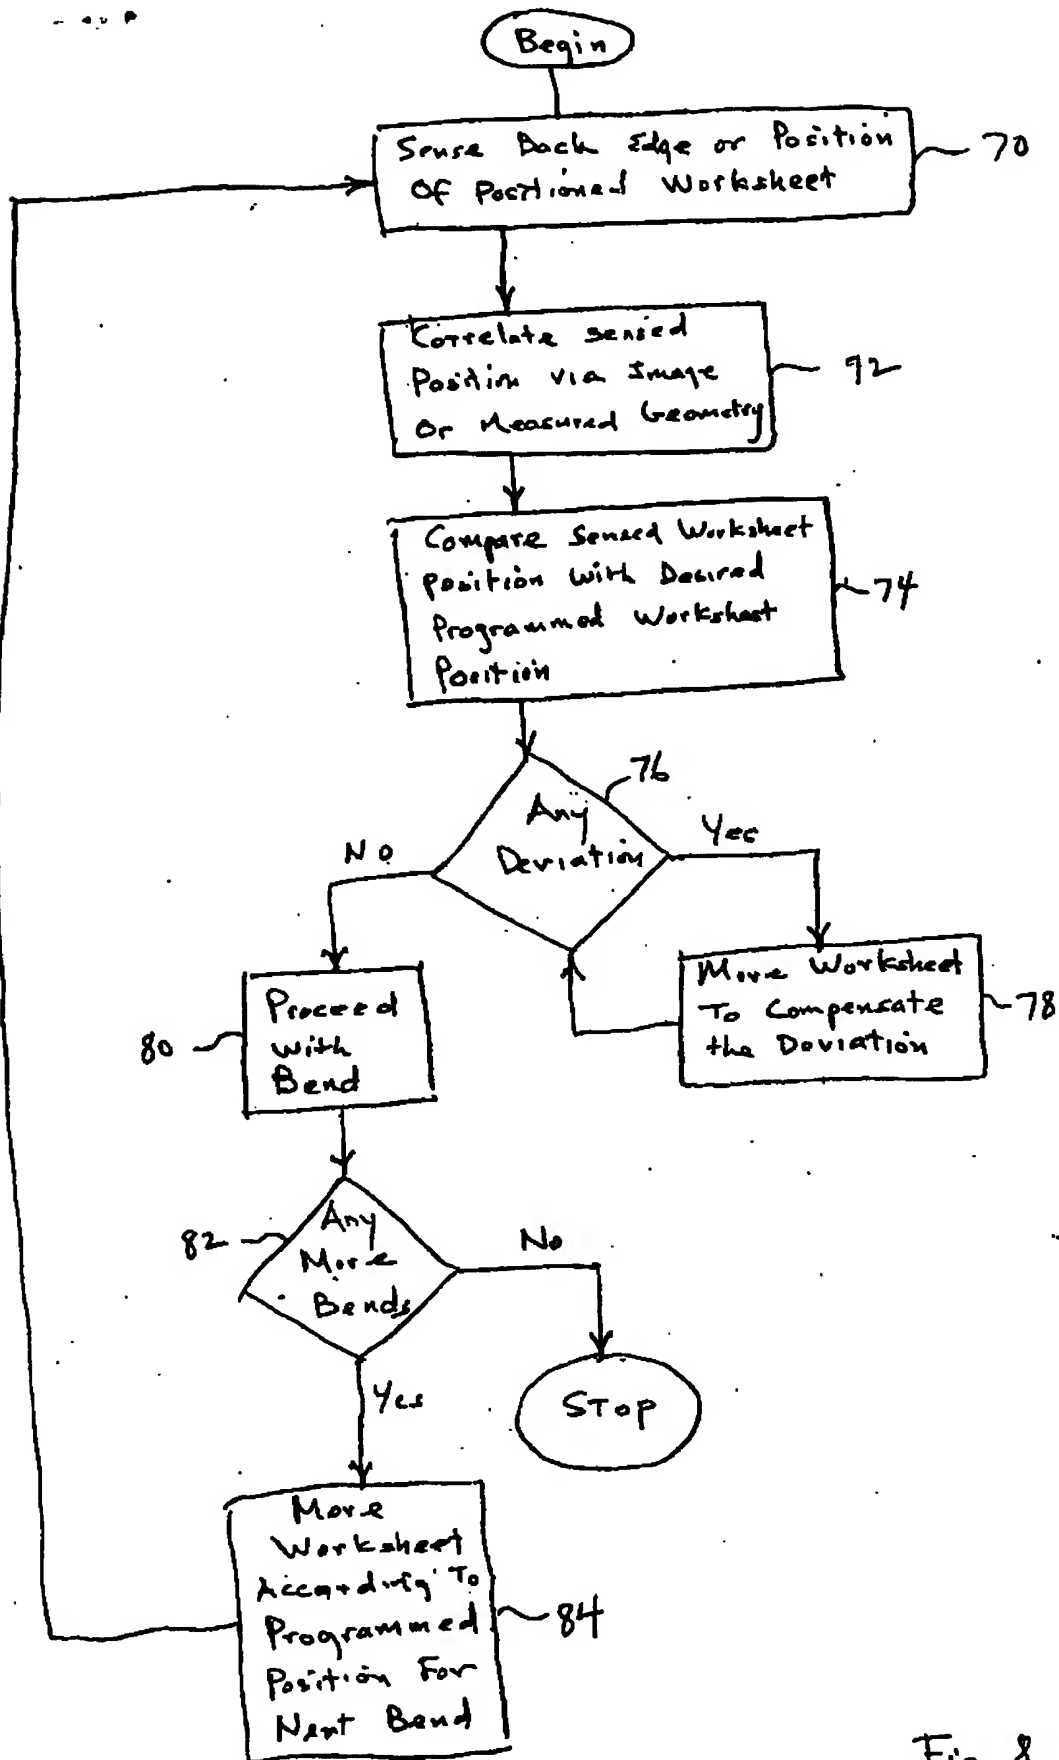 Begin
Sense Back Edge or Position
Of Positioned Worksheet
70
Correlate Sensed
Position via Image
Or Measured Geometry
92
Compare Sensed Worksheet
Position with Desired
Programmed Worksheet
Position
74
76
Any
Deviation
No
Yes
Move Worksheet
To Compensate
the Deviation
78
80
Proceed
with
Bend
82
Any
More
Bends
No
Yes
STOP
Move
Worksheet
According To
Programmed
Position For
Next Bend
84
Fig. 8